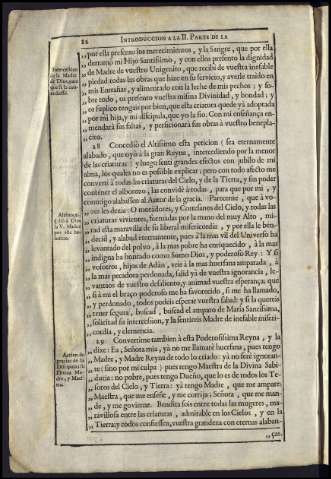 22 INTRODUCCION A LA II. PARTE DE LA
„ por ella presento los merecimientos, y la Sangre, que por ella
„ derramò mi Hijo Santissimo, y con ellos presento la dignidad
„ de Madre de vuestro Unigenito, que recibì de vuestra inefable
„ piedad todas las obras que hize en su servicio, y averle traido en
„ mis Entrañas, y alimentado con la leche de mis pechos; y so-
„ bre todo, os presento vuestra misma Divinidad, y bondad; y
„ os suplico tengais por bien, que esta criatura quede yà adoptada
„ por mi hija, y mi discipula, que yo la fio. Con mi enseñança en-
„ mendarà sus faltas, y perficionarà sus obras à vuestro beneplà-
„ cito.
28 Concediò el Altissimo esta peticion (sea eternamente
alabado, que oyò à la gran Reyna, intercediendo por la menor
de las criaturas) y luego sentì grandes efectos con jubilo de mi
alma, los quales no es possible explicar; pero con todo afecto me
convertì à todas las criaturas del Cielo, y de la Tierra, y sin poder
contener el alborozo, las combidè à todas, para que por mi, y
conmigo alabassen al Autor de la gracia. Pareceme, que à vo-
zes les dezia: O moradores, y Cortesanos del Cielo, y todas las
„ criaturas vivientes, formadas por la mano del muy Alto, mi-
„ rad esta maravilla de su liberal misericordia, y por ella le ben-
„ decid, y alabad eternamente, pues à la mas vil del Universo ha
„ levantado del polvo, à la mas pobre ha enriquecido, à la mas
„ indigna ha honrado como Sumo Dios, y poderoso Rey: Y si
„ vosotros, hijos de Adàn, veis à la mas huerfana amparada, à
„ la mas pecadora perdonada, salid yà de vuestra ignorancia, le-
„ vantaos de vuestro desaliento, y animad vuestra esperança, que
„ si à mi el braço poderoso me ha favorecido, si me ha llamado,
„ y perdonado, todos podeis esperar vuestra salud; y si la quereis
„ tener segura, buscad, buscad el amparo de Maria Santissima,
„ solicitad su intercession, y la sentireis Madre de inefable miseri-
„ cordia, y clemencia.
29 Convertime tambien à esta Poderosissima Reyna, y la
dixe: Ea, Señora mia, yà no me llamarè huerfana, pues tengo
„ Madre, y Madre Reyna de todo lo criado: yà no serè ignoran-
„ te (sino por mi culpa) pues tengo Maestra de la Divina Sabi-
„ duria: no pobre, pues tengo Dueño, que lo es de todos los Te-
„ soros del Cielo, y Tierra: yà tengo Madre, que me ampare;
„ Maestra, que me enseñe, y me corrija; Señora, que me man-
„ de, y me govierne. Bendita sois entre todas las mugeres, ma-
„ ravillosa entre las criaturas, admirable en los Cielos, y en la
„ Tierra; y todos confiessen, vuestra grandeza con eternas alaban-
„ ças.